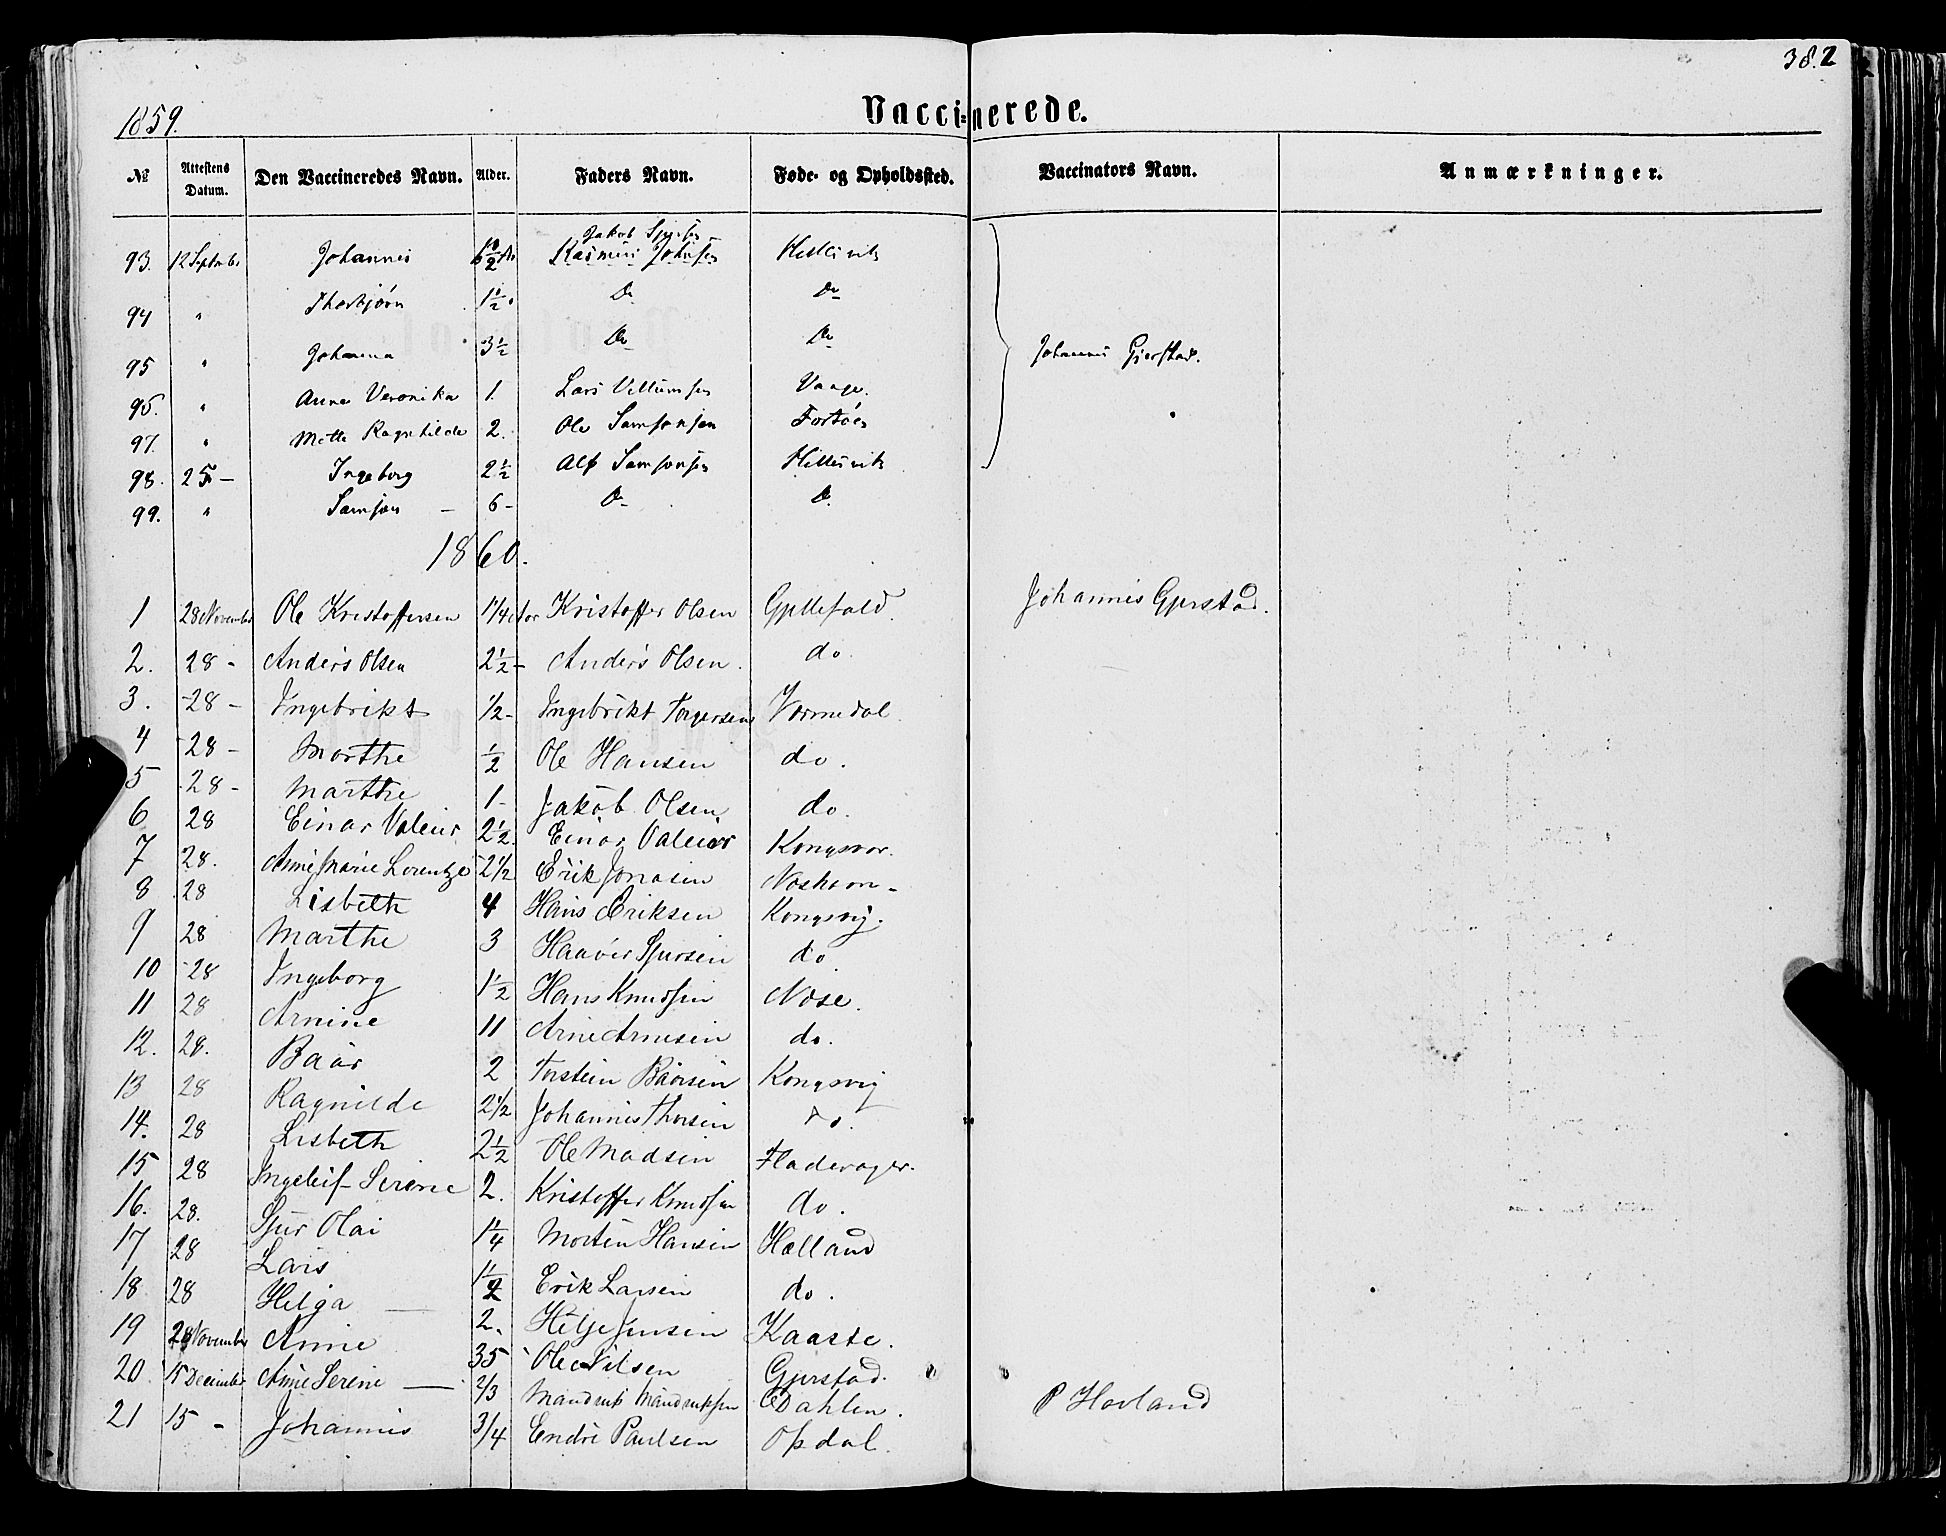 382
1859.
Vaccinerede.
№ Attestens Datum. Den Vaccineredes Navn. Alder. Faders Navn. Føde- og Opholdssted. Vaccinators Navn. Anmærkninger.
Jakob
93. 12 Septmbr Johannis Rasmus Johnsen
94 " Thorbjørn 1½ Do Do
95 " Johanna 3½ Do Do Johannes Gjerstad.
96. " Anna Veronika 1. Lars Villumsen Vaage.
97. " Mette Ragnhilde 2. Ole Samsonsen
98. 25 – Ingeborg 2½ Alf Samsonsen
99. " Samson – 6 – Do Do
1860.
1 28 November Ole Kristoffersen Kristoffer Olsen Gyllefald. Johannis Gjerstad.
2. 28 - Anders Olsen 2½ - Anders Olsen. do.
3. 28 - Ingebrikt ½ - Ingebrikt Torgersen Vormedal.
4 28 - Marthe ½ Ole Hansen do.
5 28 - Marthe 1 - Jakob Olsen do.
6 28 Einar Valeur 2½. Einar Valeur
7 28. Anne Marie Lorentze 2½ Erik Jonasen
8 28 Lisbeth 4 Hans Eriksen Kongsvig.
9 28 Marthe 3 Haaver Sjursen do.
10 28 Ingeborg 1½ Hans Knudsen Nose.
11 28 Arnine 11 Arne Arnesen do.
12. 28. Baar 2 Torstein Baarsen Kongsvig
13 28 Ragnilde 2½ Johannis Thorsen do.
14. 28 Lisbeth 2½ Ole Madsen Fladevager.
15 28 Ingeleif Serine 2. Kristoffer Knudsen do.
16. 28. Sjur Olai 1¼ Morten Hansen Hælland
17 28 Lars Erik Larsen do.
18. 28 Helga — 2. Helje Jensen Kaarte.
19 28 November Anne 35 Ole Nilsen Gjerstad.
20. 15 December Anne Serine — 2/3 Mandrup Mandrupsen Dahlen. P Hovland
21 15 - Johannis 3/4 Endre Paulsen Opdal.